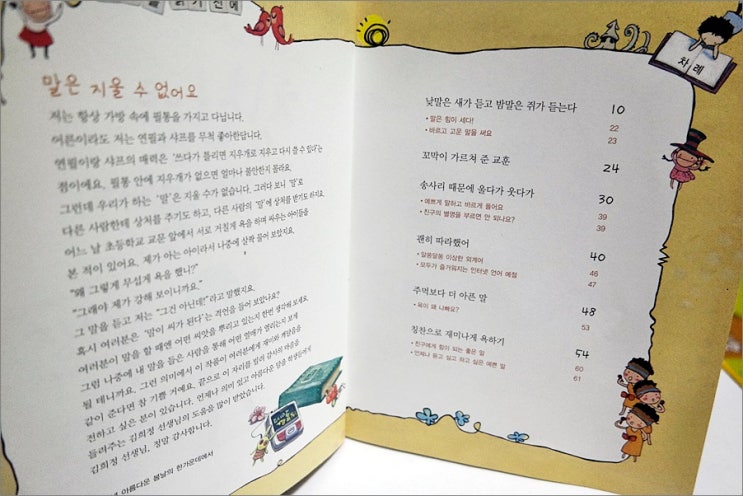 읽기 전에
말은 지울 수 없어요
저는 항상 가방 속에 필통을 가지고 다닙니다.
어른이라도 저는 연필과 샤프를 무척 좋아한답니다.
연필이랑 샤프의 매력은 '쓰다가 틀리면 지우개로 지우고 다시 쓸 수 있다'는
점이에요. 필통 안에 지우개가 없으면 얼마나 불안한지 몰라요.
그런데 우리가 하는 '말'은 지울 수가 없습니다. 그러다 보니 '말'로
다른 사람한테 상처를 주기도 하고, 다른 사람의 '말'에 상처를 받기도 하지요.
어느 날 초등학교 교문 앞에서 서로 거칠게 욕을 하며 싸우는 아이들을
본 적이 있어요. 제가 아는 아이라서 나중에 살짝 물어 보았지요.
"왜 그렇게 무섭게 욕을 했니?"
"그래야 제가 강해 보이니까요."
그 말을 듣고 저는 "그건 아닌데!"라고 말했지요.
혹시 여러분은 '말이 씨가 된다'는 격언을 들어 보았나요?
여러분이 말을 할 때엔 어떤 씨앗을 뿌리고 있는지 한번 생각해 보세요.
그럼 나중에 내 말을 들은 사람을 통해 어떤 열매가 맺히는지 보게
될 테니까요. 그런 의미에서 이 작품이 여러분에게 재미와 깨달음을
같이 준다면 참 기쁠 거예요. 끝으로 이 자리를 빌려 감사의 마음을
전하고 싶은 분이 있습니다. 언제나 의미 있고 아름다운 말을 학생들에게
들려주는 김희정 선생님의 도움을 많이 받았습니다.
김희정 선생님, 정말 감사합니다.
아름다운 봄날의 한가운데에서
차례
낮말은 새가 듣고 밤말은 쥐가 듣는다 10
• 말은 힘이 세다! 22
• 바르고 고운 말을 써요 23
꼬박이 가르쳐 준 교훈 24
송사리 때문에 울다가 웃다가 30
• 예쁘게 말하고 바르게 들어요 39
• 친구의 별명을 부르면 안 되나요? 39
괜히 따라했어 40
• 알쏭달쏭 이상한 외계어 46
• 모두가 즐거워지는 인터넷 언어 예절 47
주먹보다 더 아픈 말 48
• 욕이 왜 나빠요? 53
칭찬으로 재미나게 욕하기 54
• 친구에게 힘이 되는 좋은 말 60
• 언제나 듣고 싶고 하고 싶은 예쁜 말 61